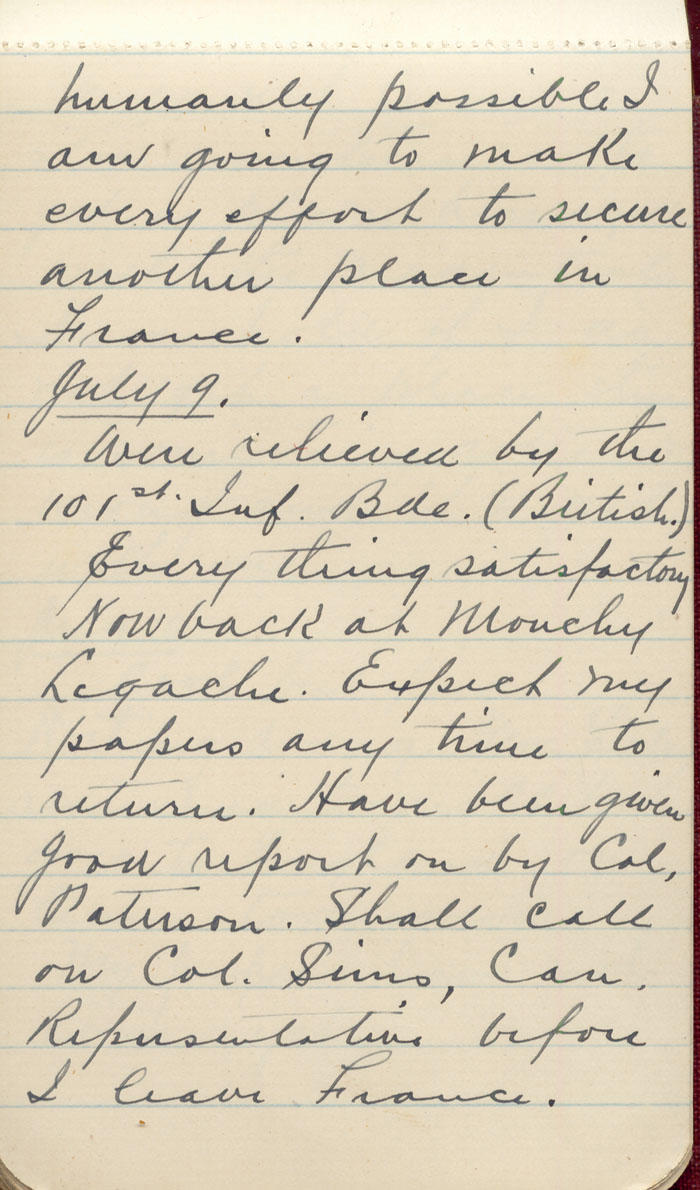 humanly possible I
am going to make
every effort to secure
another place in
France.
July 9.
Were relieved by the
101st. Inf. Bde. (British.)
Every thing satisfactory
Now back at Monchy
Legache. Expect my
papers any time to
return. Have been given
good report on by Col,
Paterson. Shall call
on Col. Sims, Can.
Representative before
I leave France.